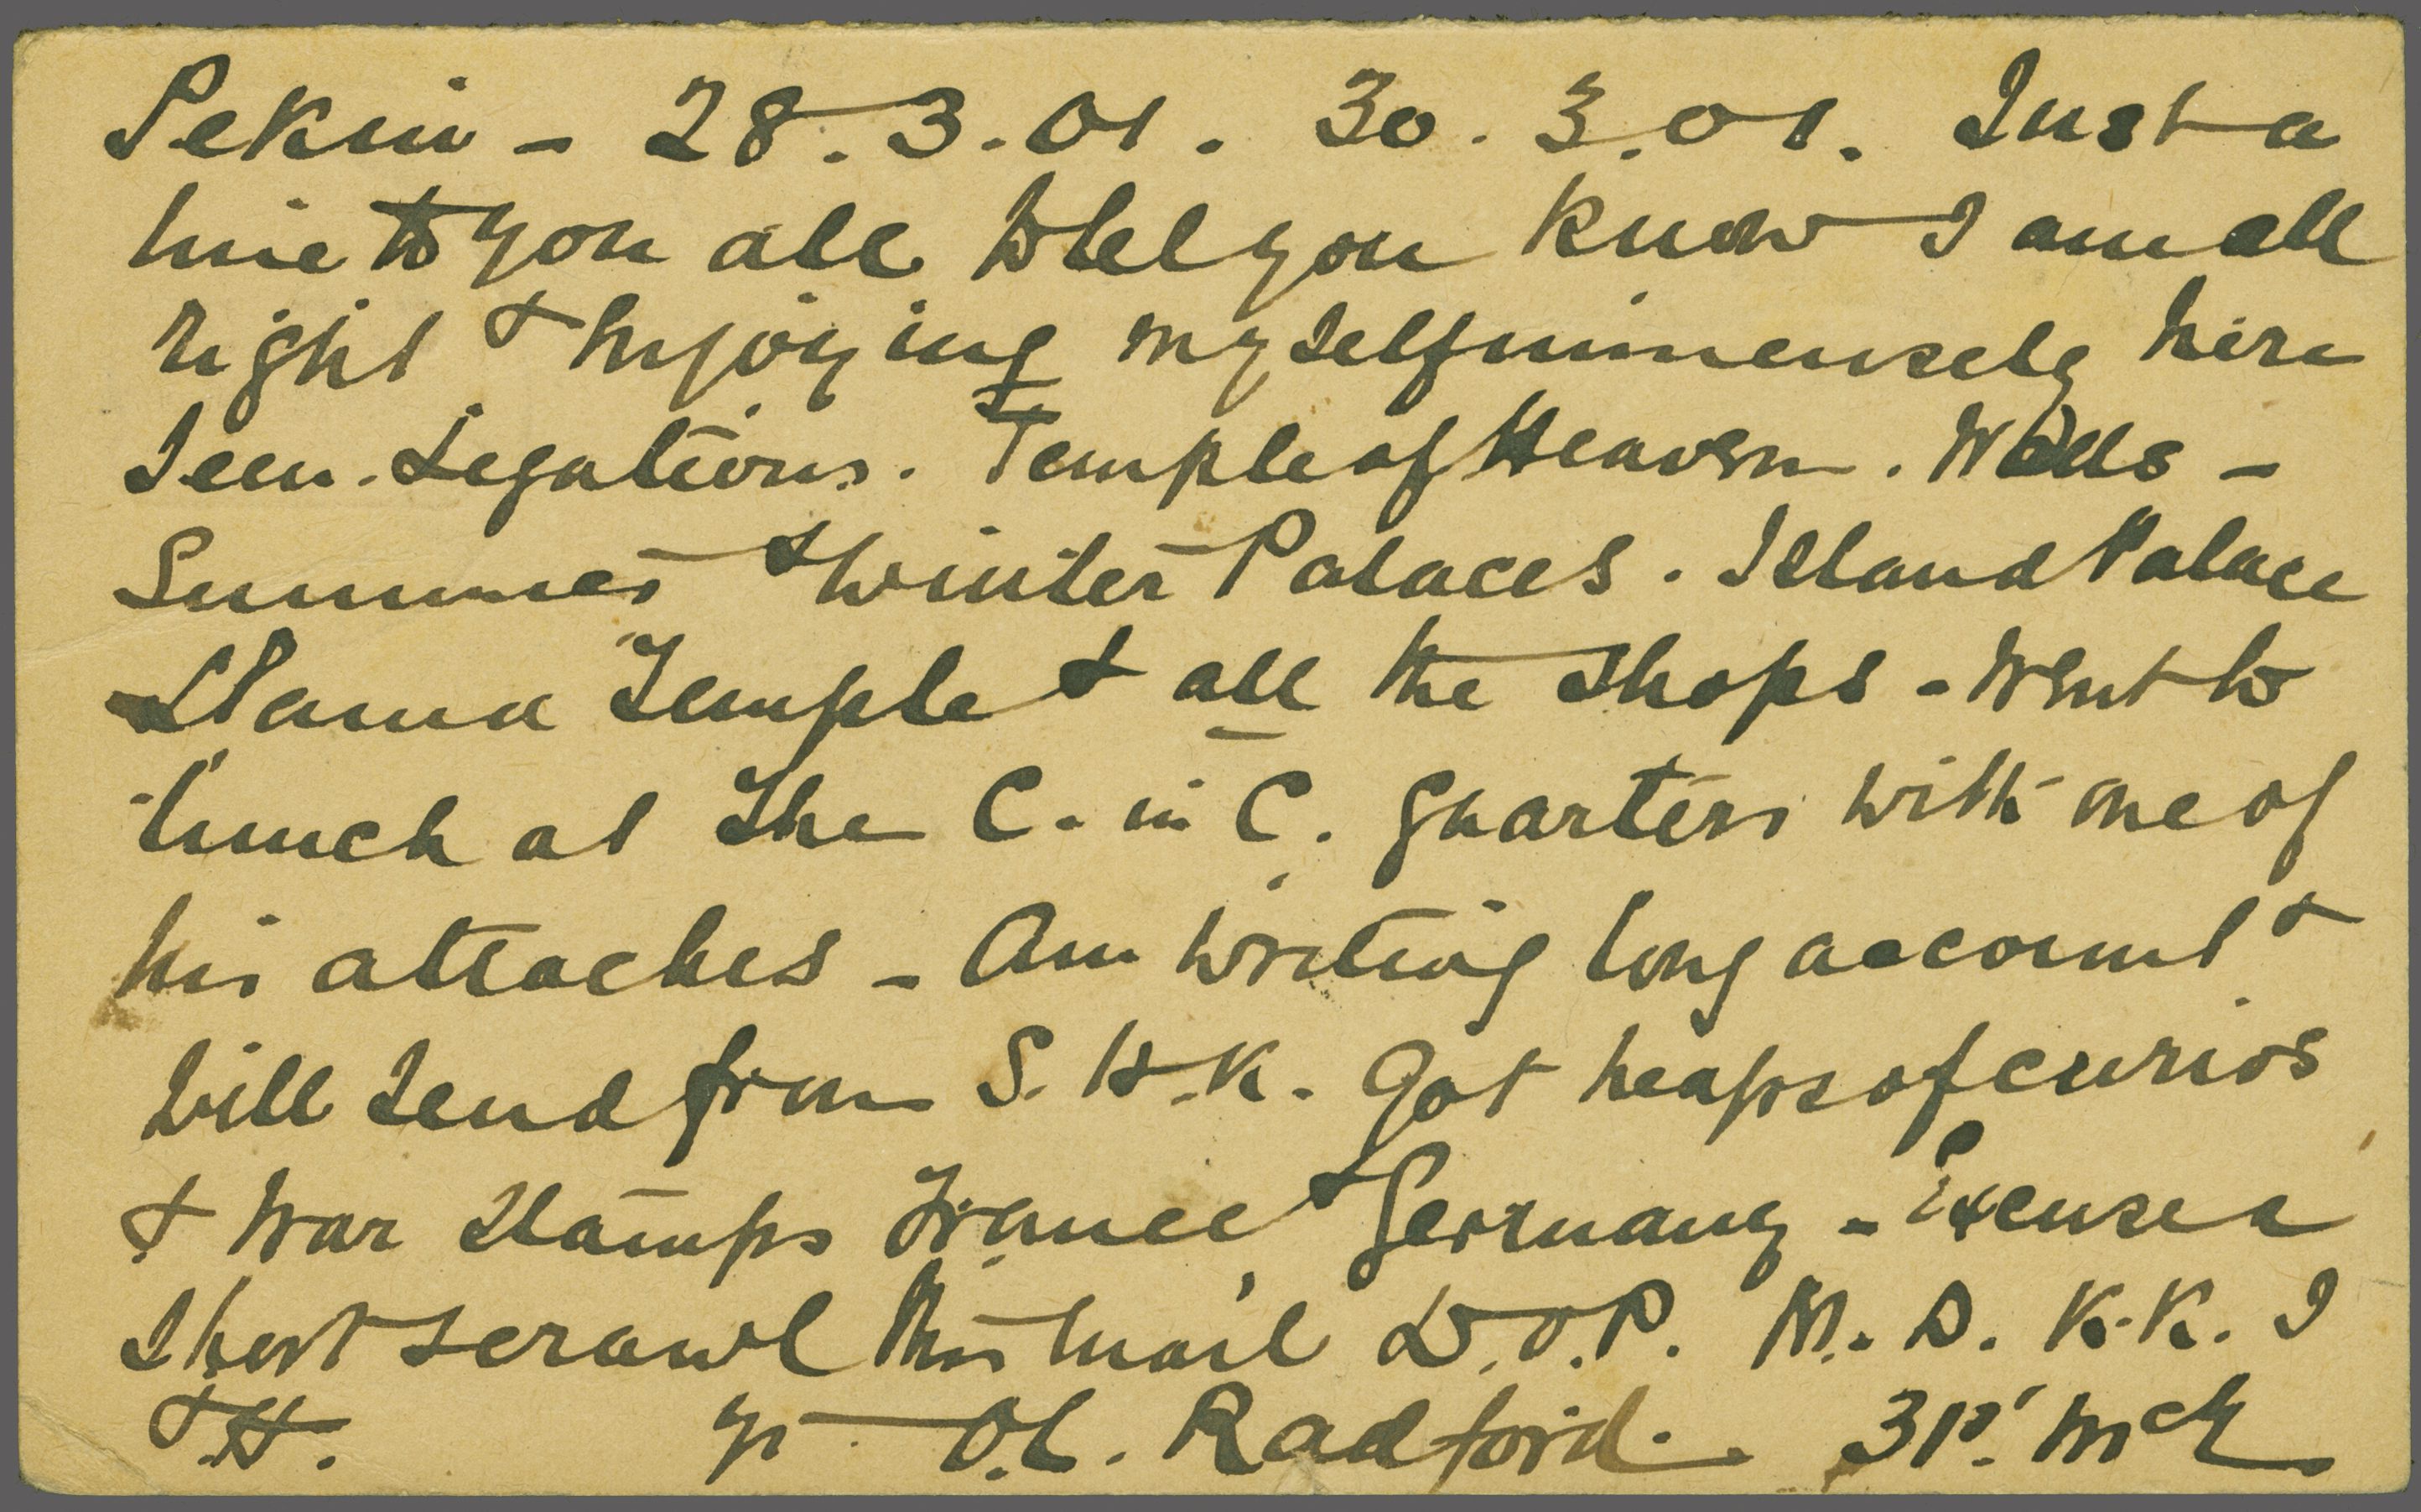 Pekin - 28.3.01. 30.3.01. Just a
line to you all to let you know I am all
right & enjoying myself immensely here
Seen. Legations. Temple of Heaven. Walls -
Summer & Winter Palaces. Island Palace
Llama Temple & all the shops - Went to
lunch at the C. in C. quarters with one of
his attaches - Am writing long account &
will send from S.H.K. Got heaps of curios
& War Stamps France & Germany - Excuse a
short scrawl this mail D.O.P. M.D. K.K. I
& H. Yr O.C. Radford. 31st Mch